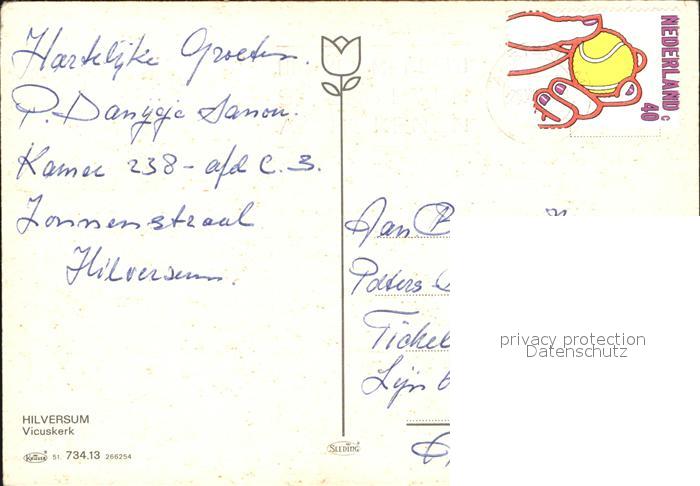 Hartelijke Groeten.
P. Danygje Sanou.
Kamer 238 - afd C. 3.
Zonnenstraal
Hilversum.
NEDERLAND
c
40
Jan
Potters
Tichel
Lijn
privacy protection
Datenschutz
HILVERSUM
Vicuskerk
51. 734.13 266254
SLEDING